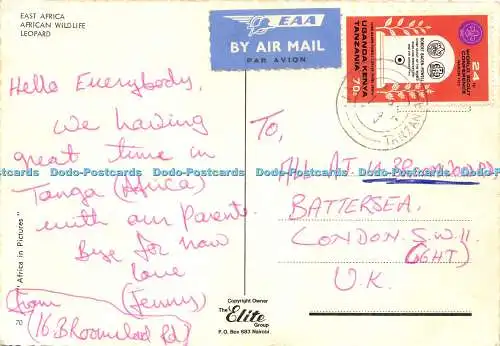 EAST AFRICA
AFRICAN WILDLIFE
LEOPARD
EAA
BY AIR MAIL
PAR AVION
24TH
WORLD SCOUT
CONFERENCE
UGANDA KENYA
TANZANIA 70c
TANZANIA
Hello Everybody,
We having
great time in
Tanga (Africa)
with our Parents
Bye for now
love
from (Jenny)
(16. BRoomwood Rd)
To,
ALL AT 16 BRoomwood Rd
BATTERSEA.
LONDON. S.W.11
(GHT)
U.K.
Dodo-Postcards Dodo-Postcards Dodo-Postcards Dodo-Postcards
"Africa in Pictures"
70
Copyright Owner
The Elite Group
P.O. Box 683 Nairobi